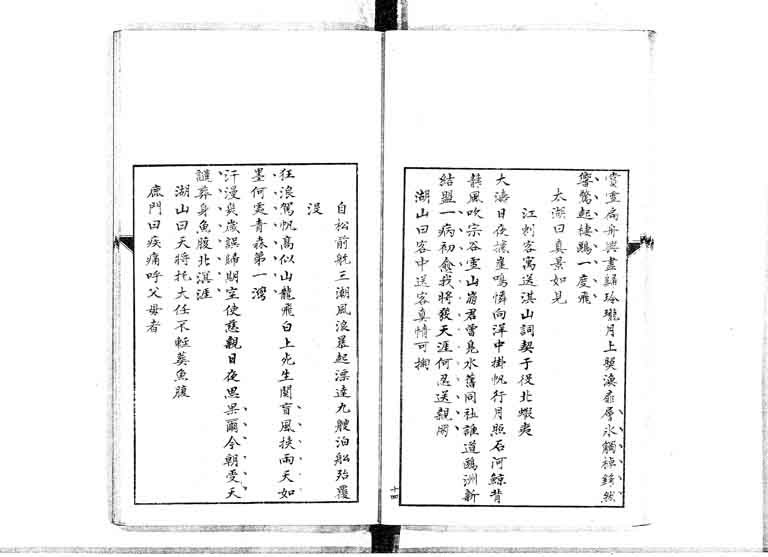 賞雪扁舟興盡歸玲瓏月上
層氷觸棹鏘然
響驚起棲鷗一度飛
太湖曰真景如見
江刺客寓送淇山詞契于役北蝦夷
大濤日夜摶崖鳴憐向洋中掛帆行月照石河鯨背
颿風吹宗谷雪山崩君嘗見水舊同社誰道鷗洲新
結盟一病初愈我將發天涯何忍送親朋
湖山曰客中送客真情可掬
十四
自松前航三潮風浪暴起漂達九艘泊船殆覆
没
狂浪駕帆高似山龍飛白上先生関盲風挾雨天如
墨何處青森第一灣
汗漫奚歲誤歸期空使慈親日夜思果爾今朝受天
譴葬身魚腹北溟涯
湖山曰天將托大任不輕葬魚腹
鹿門曰疾痛呼父母者